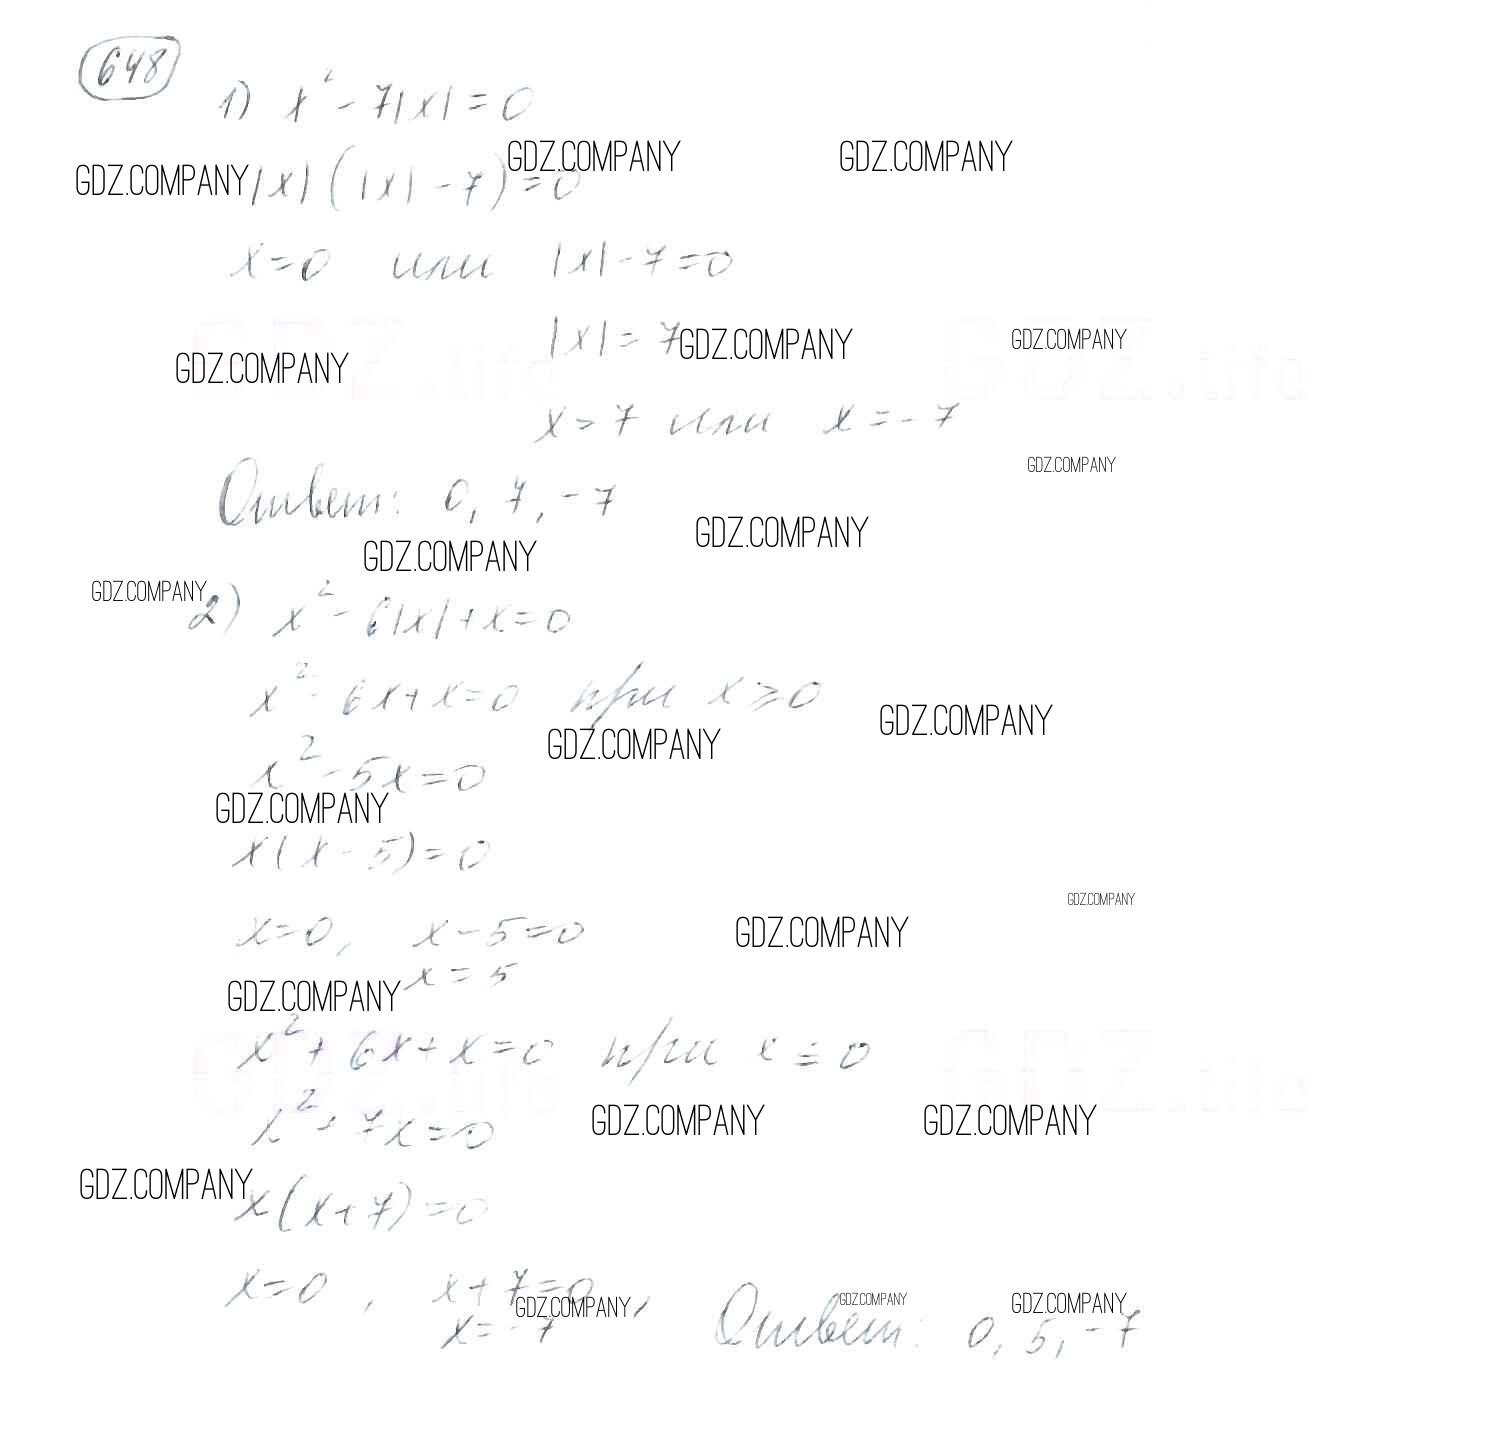 648
1) x² - 7|x| = 0
GDZ.COMPANY GDZ.COMPANY
GDZ.COMPANY |x| (|x| - 7) = 0
x = 0 или |x| - 7 = 0
GDZ.life GDZ.life
|x| = 7 GDZ.COMPANY GDZ.COMPANY
GDZ.COMPANY
x = 7 или x = - 7
GDZ.COMPANY
Ответ: 0, 7, - 7
GDZ.COMPANY
GDZ.COMPANY
GDZ.COMPANY
2) x² - 6|x| + x = 0
x² - 6x + x = 0 при x ⩾ 0
GDZ.COMPANY
GDZ.COMPANY
x² - 5x = 0
GDZ.COMPANY
x(x - 5) = 0
GDZ.COMPANY
x = 0, x - 5 = 0 GDZ.COMPANY
x = 5
GDZ.COMPANY
x² + 6x + x = 0 при x ≤ 0
GDZ.life GDZ.life
x² + 7x = 0 GDZ.COMPANY GDZ.COMPANY
GDZ.COMPANY
x(x + 7) = 0
x = 0, x + 7 = 0,
GDZ.COMPANY GDZ.COMPANY GDZ.COMPANY
x = - 7 Ответ: 0, 5, - 7